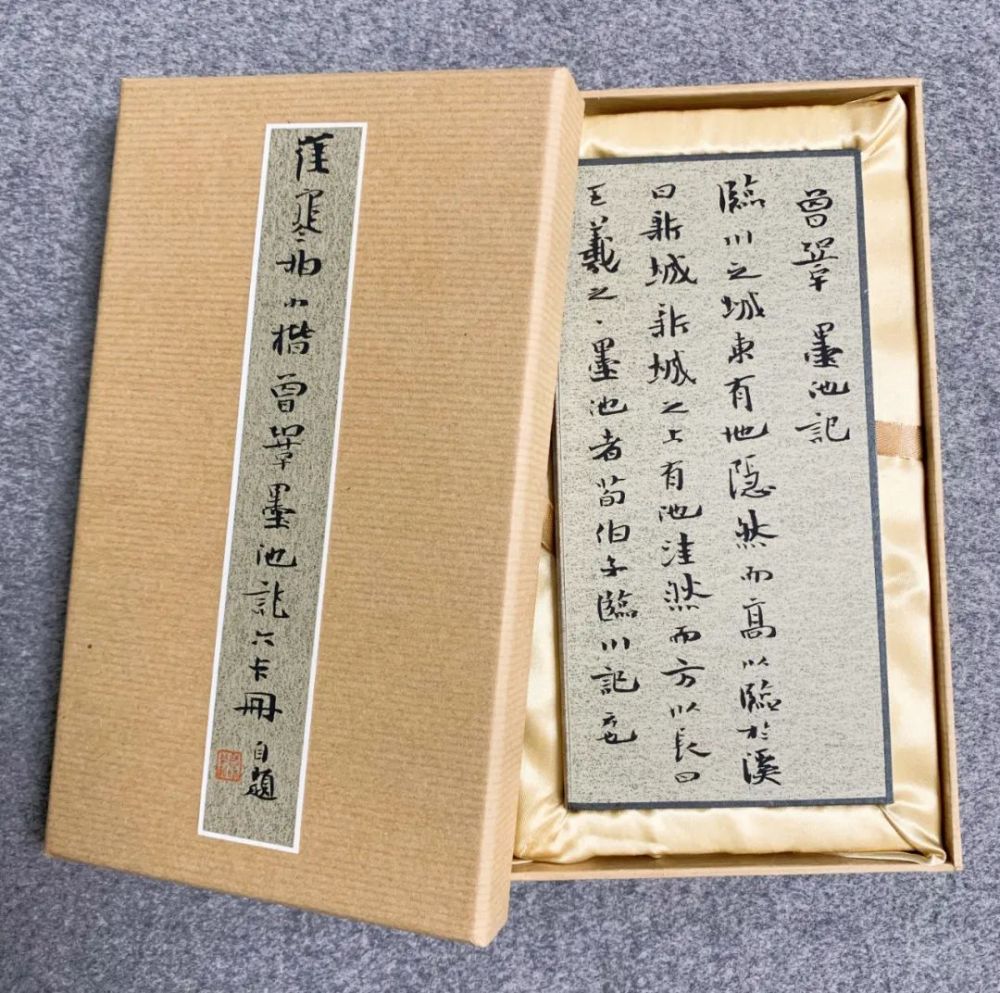 崔寒柏小楷曾鞏墨池記六卡冊
自題
曾鞏 墨池記
臨川之城東有地隐然而高以臨於溪
曰新城新城之上有池洼然而方以長曰
王羲之之墨池者荀伯子臨川記云也